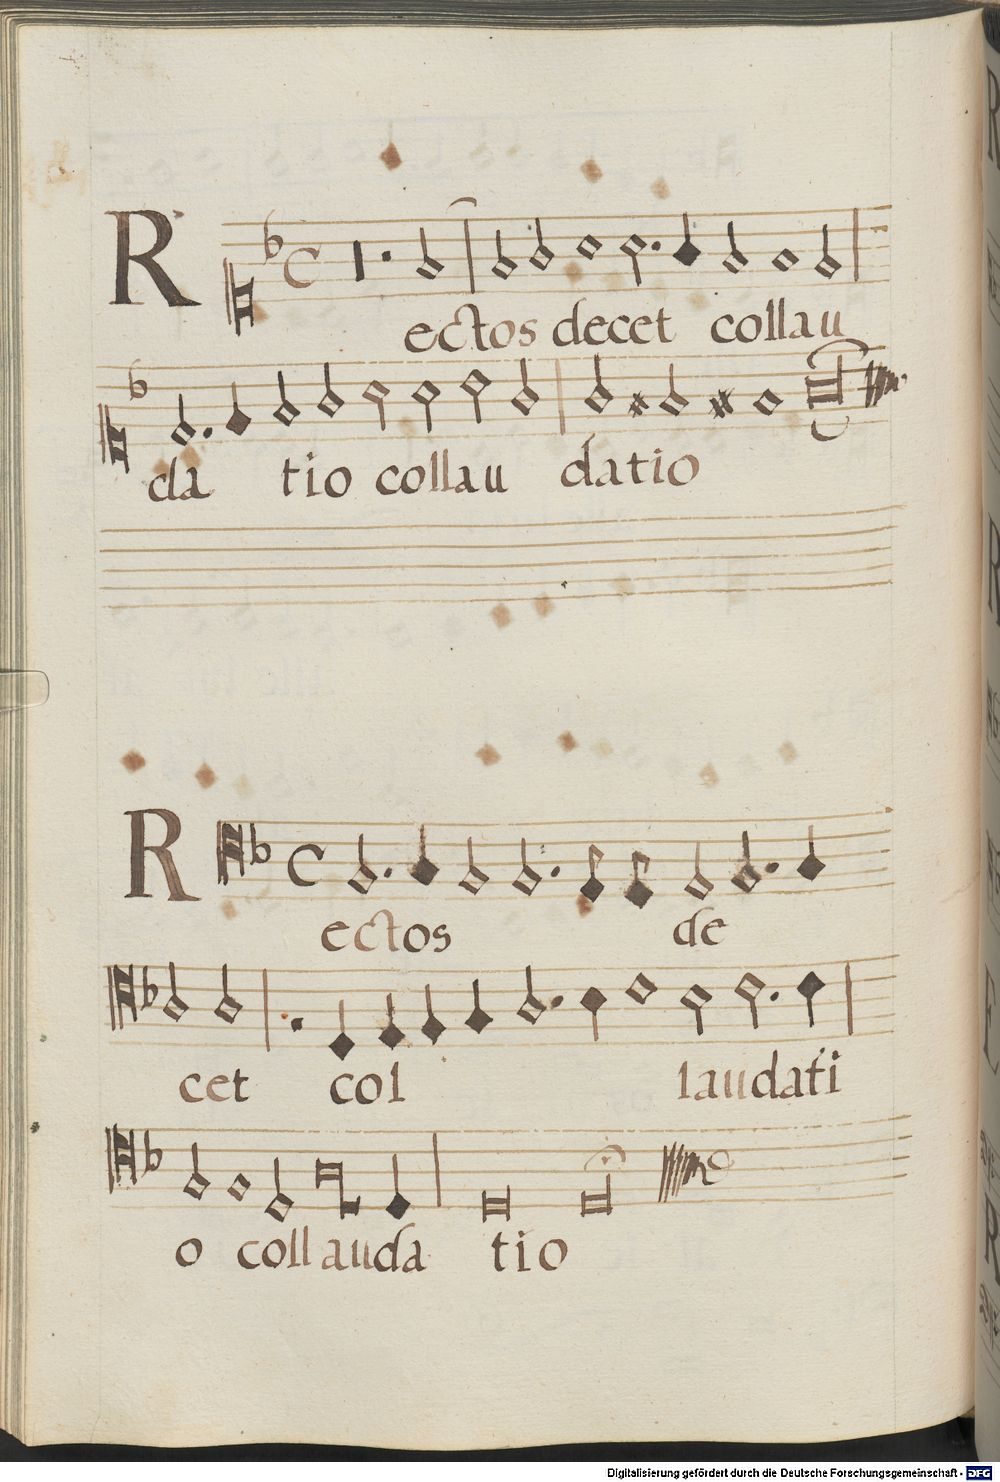 R
ectos decet collau
da tio collau datio
R
ectos de
cet col laudati
o collauda tio
Digitalisierung gefördert durch die Deutsche Forschungsgemeinschaft - DFG